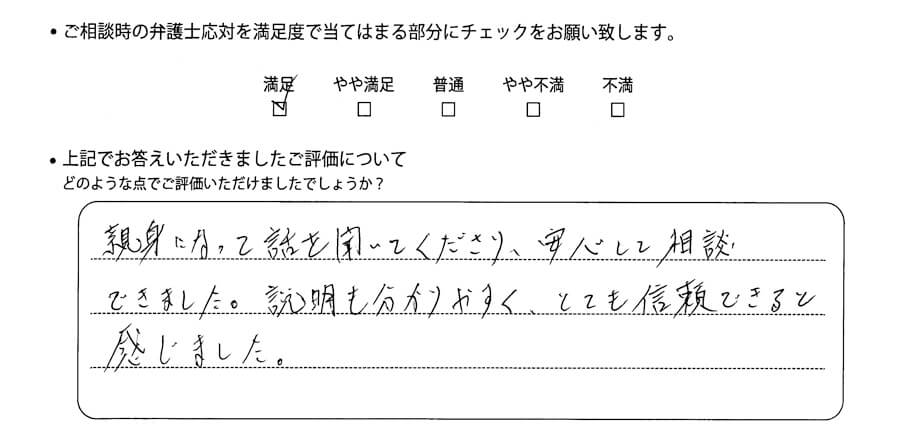 • ご相談時の弁護士応対を満足度で当てはまる部分にチェックをお願い致します。
満足 やや満足 普通 やや不満 不満
☑ □ □ □ □
• 上記でお答えいただきましたご評価について
どのような点でご評価いただけましたでしょうか？
親身になって話を聞いてくださり、安心して相談
できました。説明も分かりやすく、とても信頼できると
感じました。